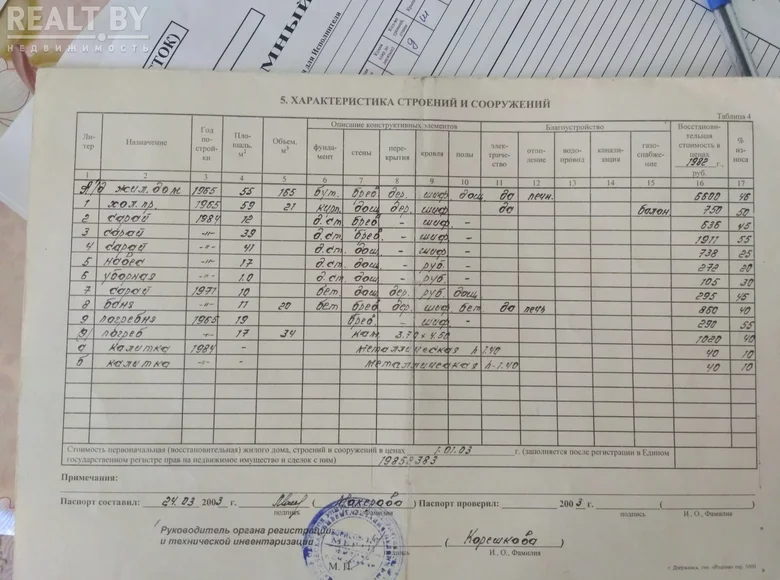 REALT.BY
НЕДВИЖИМОСТЬ
5. ХАРАКТЕРИСТИКА СТРОЕНИЙ И СООРУЖЕНИЙ
Таблица 4
Ли-тер | Назначение | Год по-строй-ки | Пло-щадь, м² | Объем, м³ | Описание конструктивных элементов | Благоустройство | Восстанови-тельная стоимость в ценах 1982 г., руб. | % из-носа
фунда-мент | стены | пере-крытия | кровля | полы | элек-тричество | отоп-ление | водо-провод | канали-зация | газо-снабже-ние
1 2 3 4 5 6 7 8 9 10 11 12 13 14 15 16 17
жил. дом 1965 55 165 бут. брев дер. шиф дощ да печн. 6600 46
1 хол. пр. 1965 59 21 кирп. дощ дер. шиф. да балон. 750 50
2 сарай 1984 12 д.ст. брев. - шиф. - 636 45
3 сарай -"- 39 д.ст. брев. - шиф - 1911 55
4 сарай -"- 41 д.ст. дощ. - шиф - 738 25
5 навес -"- 17 д.ст. дощ. - руб. - 272 20
6 уборная -"- 1.0 д.ст. дощ. - руб. - 105 30
7 сарай 1971 10 бет. дощ. дер. руб. дощ. 295 45
8 баня -"- 11 20 бет. брев. дер. шиф бет да печь 860 40
9 погребня 1965 19 брев. - шиф. - 290 55
погреб -"- 17 34 кам. 1020 40
а калитка 1984 - металлическая h-1.40 40 10
б калитка - металлическая h-1.40 40 10
Стоимость первоначальная (восстановительная) жилого дома, строений и сооружений в ценах 1.01.03 г. (заполняется после регистрации в Едином
государственном регистре прав на недвижимое имущество и сделок с ним) 19852383
Примечания:
Паспорт составил: 24.03 2003 г. Паспорт проверил: 2003 г.
подпись фамилия подпись И., О., Фамилия
Руководитель органа регистрации
и технической инвентаризации ( Корешкова )
подпись И., О., Фамилия
М. П.